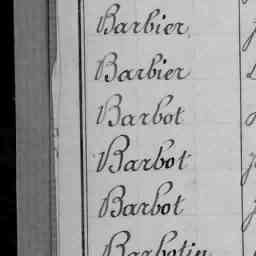 Barbier
Barbier
Barbot
Barbot
Barbot
Barbotin